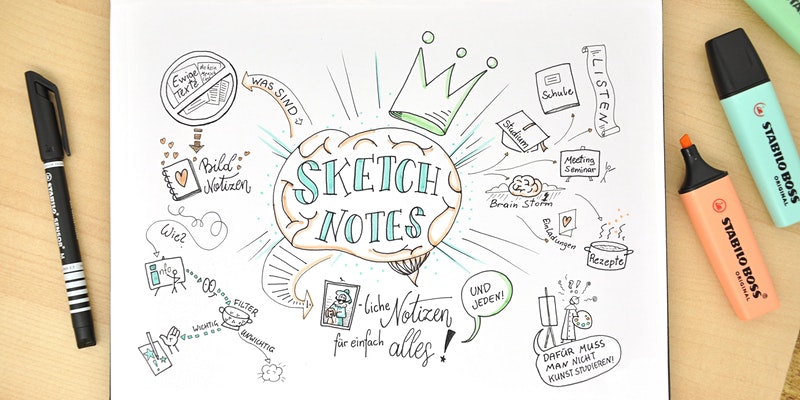 Ewige
Texte
WAS SIND
Bild
Notizen
Wie?
info
FILTER
WICHTIG
UNWICHTIG
SKETCH
NOTES
-liche Notizen
für einfach alles!
UND
JEDEN!
LISTEN
Schule
Studium
Meeting
Seminar
Brain Storm
Einladungen
Rezepte
DAFÜR MUSS
MAN NICHT
KUNST STUDIEREN!
STABILO SENSOR M
STABILO BOSS
ORIGINAL
STABILO BOSS
ORIGINAL